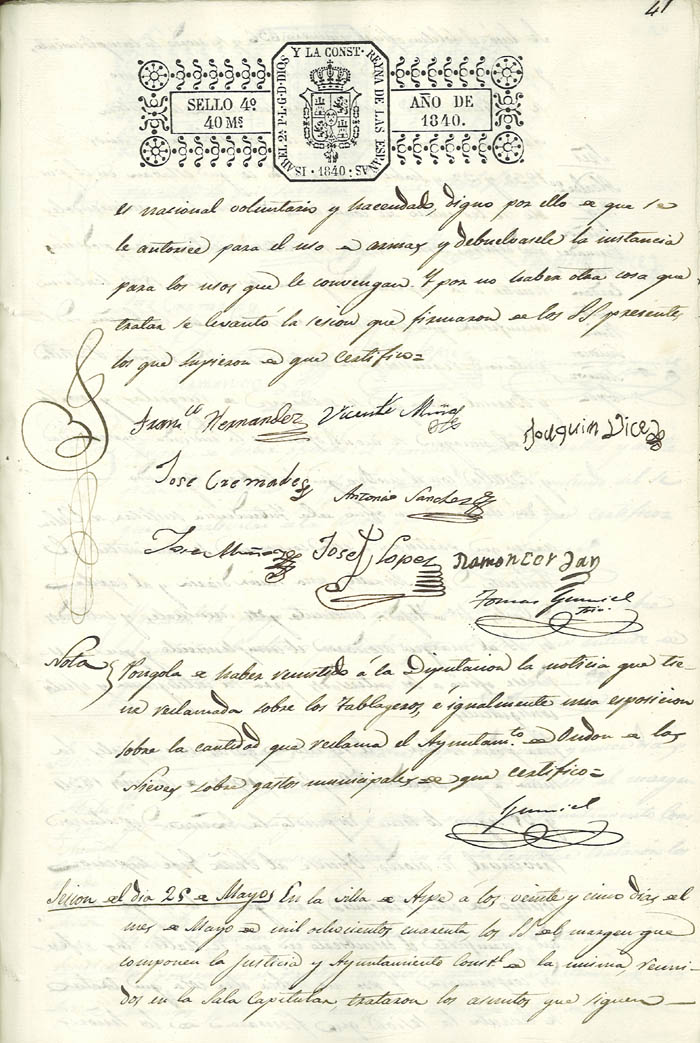 41
ISABEL 2ª P.L.G.D.DIOS Y LA CONST. REYNA DE LAS ESPAÑAS: · 1840 ·
SELLO 4º
40 Ms
AÑO DE
1840.
es nacional voluntario y hacendado, digno por ello de que se
le autorice para el uso de armas y debuelvasele la instancia
para los usos que le convengan. Y por no haber otra cosa que
tratar se levantó la sesion que firmaron de los SS presentes
los que supieron de que certifico=
Franco Hernandez Vicente Muñoz
Joaquin
Jose Cremades
Antonio Sanchez
Jose Muñoz Jose Lopez Ramon cerdan
Tomas Gumiel
Srio
Nota
Pongola de haber remitido á la Diputacion la noticia que tie-
ne reclamada sobre los Tablageros, é igualmente una esposicion
sobre la cantidad que reclama el Ayuntamto de Ondon de las
Nieves sobre gastos municipales de que certifico=
Gumiel
Sesion del dia 25 de Mayo
En la villa de Aspe á los veinte y cinco dias del
mes de Mayo de mil ochocientos cuarenta los SS del margen que
componen la Justicia y Ayuntamiento Constl de la misma reuni-
dos en la Sala Capitular, trataron los asuntos que siguen